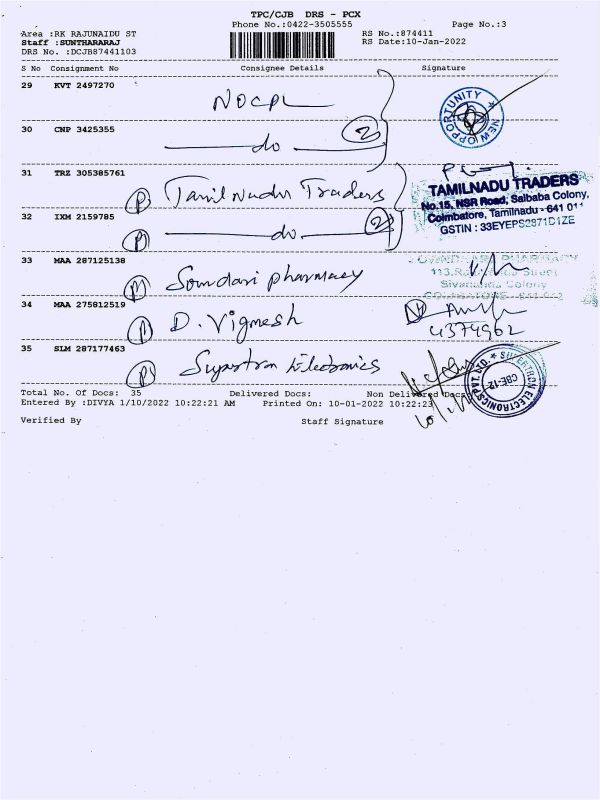 TPC/CJB DRS - PCX
Phone No.:0422-3505555 Page No.:3
Area :RK RAJUNAIDU ST RS No.:874411
Staff :SUNTHARARAJ RS Date:10-Jan-2022
DRS No. :DCJB87441103
S No Consignment No Consignee Details Signature
29 KVT 2497270
NOCPL
NEW OPPORTUNITY
30 CNP 3425355
do 2
31 TRZ 305385761
P Tamil Nadu Traders
TAMILNADU TRADERS
No.15, NSR Road, Saibaba Colony,
Coimbatore, Tamilnadu - 641 011
GSTIN : 33EYEPS2871D1ZE
32 IXM 2159785
P do 2
33 MAA 287125138
Soundari pharmacy
PHARMACY
Street
Sivananda Colony
34 MAA 275812519
D. Vignesh
4374962
35 SLM 287177463
P Supertron Electronics
SUPERTRON ELECTRONICS PVT. LTD.
CBE-12
Total No. Of Docs: 35 Delivered Docs: Non Delivered Docs
Entered By :DIVYA 1/10/2022 10:22:21 AM Printed On: 10-01-2022 10:22:23
Verified By Staff Signature